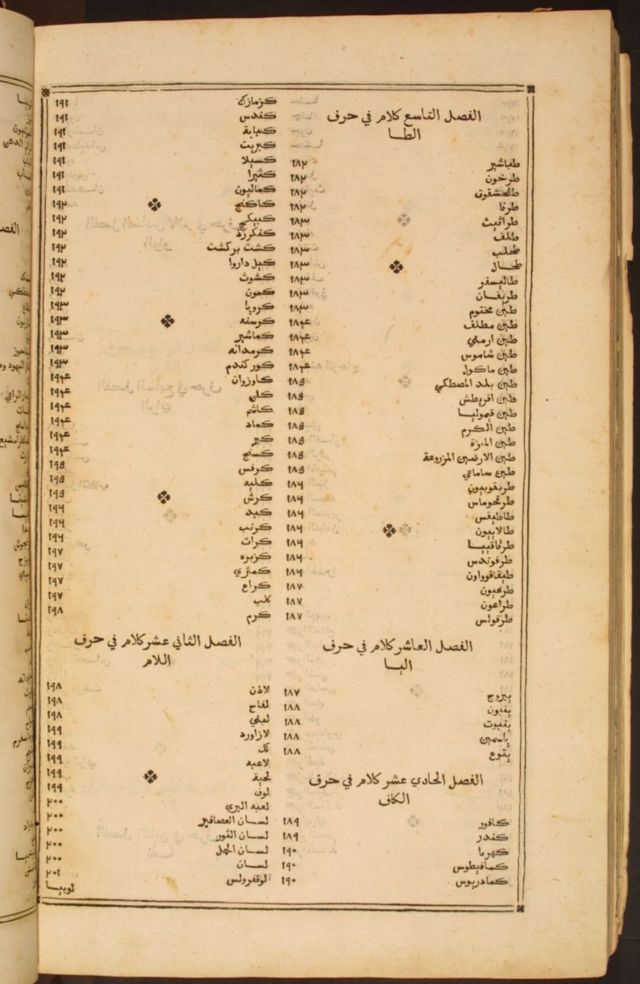 الفصل التاسع كلام في حرف
الطا
طباشير ١٨٢
طرخون ١٨٢
طلحشقوق ١٨٢
طرفا ١٨٢
طراثيث ١٨٣
طلف ١٨٣
طحلب ١٨٣
طحال ١٨٣
طاليسفر ١٨٣
طريفان ١٨٣
طين مختوم ١٨٣
طين مطلف ١٨٤
طين ارمني ١٨٤
طين شاموس ١٨٤
طين ماكول ١٨٤
طين بلد المصطكي ١٨٥
طين اقريطش ١٨٥
طين قيموليا ١٨٥
طين الكرم ١٨٥
طين المزة ١٨٥
طين الارضين المزروعة ١٨٥
طين ساماعي ١٨٥
طريفوليون ١٨٦
طرخوماس ١٨٦
طاطيقس ١٨٦
طالابيون ١٨٦
طرفاقيبا ١٨٦
طرفوندس ١٨٦
طيفاقوواون ١٨٦
طرهيون ١٨٧
طراعون ١٨٧
طرفولس ١٨٧
الفصل العاشر كلام في حرف
اليا
يبروج ١٨٧
ينبون ١٨٧
ينبوت ١٨٨
ياسمين ١٨٨
يتوع ١٨٨
الفصل الحادي عشر كلام في حرف
الكاف
كافور ١٨٩
كندر ١٨٩
كهربا ١٩٠
كمافيطوس ١٩٠
كمادريوس ١٩٠
كزمازك ١٩١
كندس ١٩١
كبابة ١٩١
كبريت ١٩١
كسيلا ١٩١
كثيرا ١٩١
كماليون ١٩١
كاكنج ١٩٢
كبيكج ١٩٢
كنكرزد ١٩٢
كشت بركشت ١٩٢
كيل داروا ١٩٢
كشوث ١٩٢
كمون ١٩٢
كرويا ١٩٣
كرسنه ١٩٣
كماشير ١٩٣
كرمدانه ١٩٣
كوركندم ١٩٣
كاوزوان ١٩٤
كلى ١٩٤
كاشم ١٩٤
كماد ١٩٤
كبر ١٩٤
كسنج ١٩٥
كرفس ١٩٥
كليه ١٩٥
كرش ١٩٥
كبد ١٩٦
كرنب ١٩٦
كراث ١٩٦
كزبره ١٩٧
كمثري ١٩٧
كراع ١٩٧
كلب ١٩٧
كرم ١٩٨
الفصل الثاني عشر كلام في حرف
اللام
لاذن ١٩٨
لفاح ١٩٨
لبني ١٩٨
لازاورد ١٩٩
لك ١٩٩
لاعيه ١٩٩
لحية ١٩٩
لوف ١٩٩
لعبه البري ٢٠٠
لسان العصافير ٢٠٠
لسان الثور ٢٠٠
لسان الحمل ٢٠٠
لسان ٢٠٠
لوقفرولس ٢٠١
لوبيا